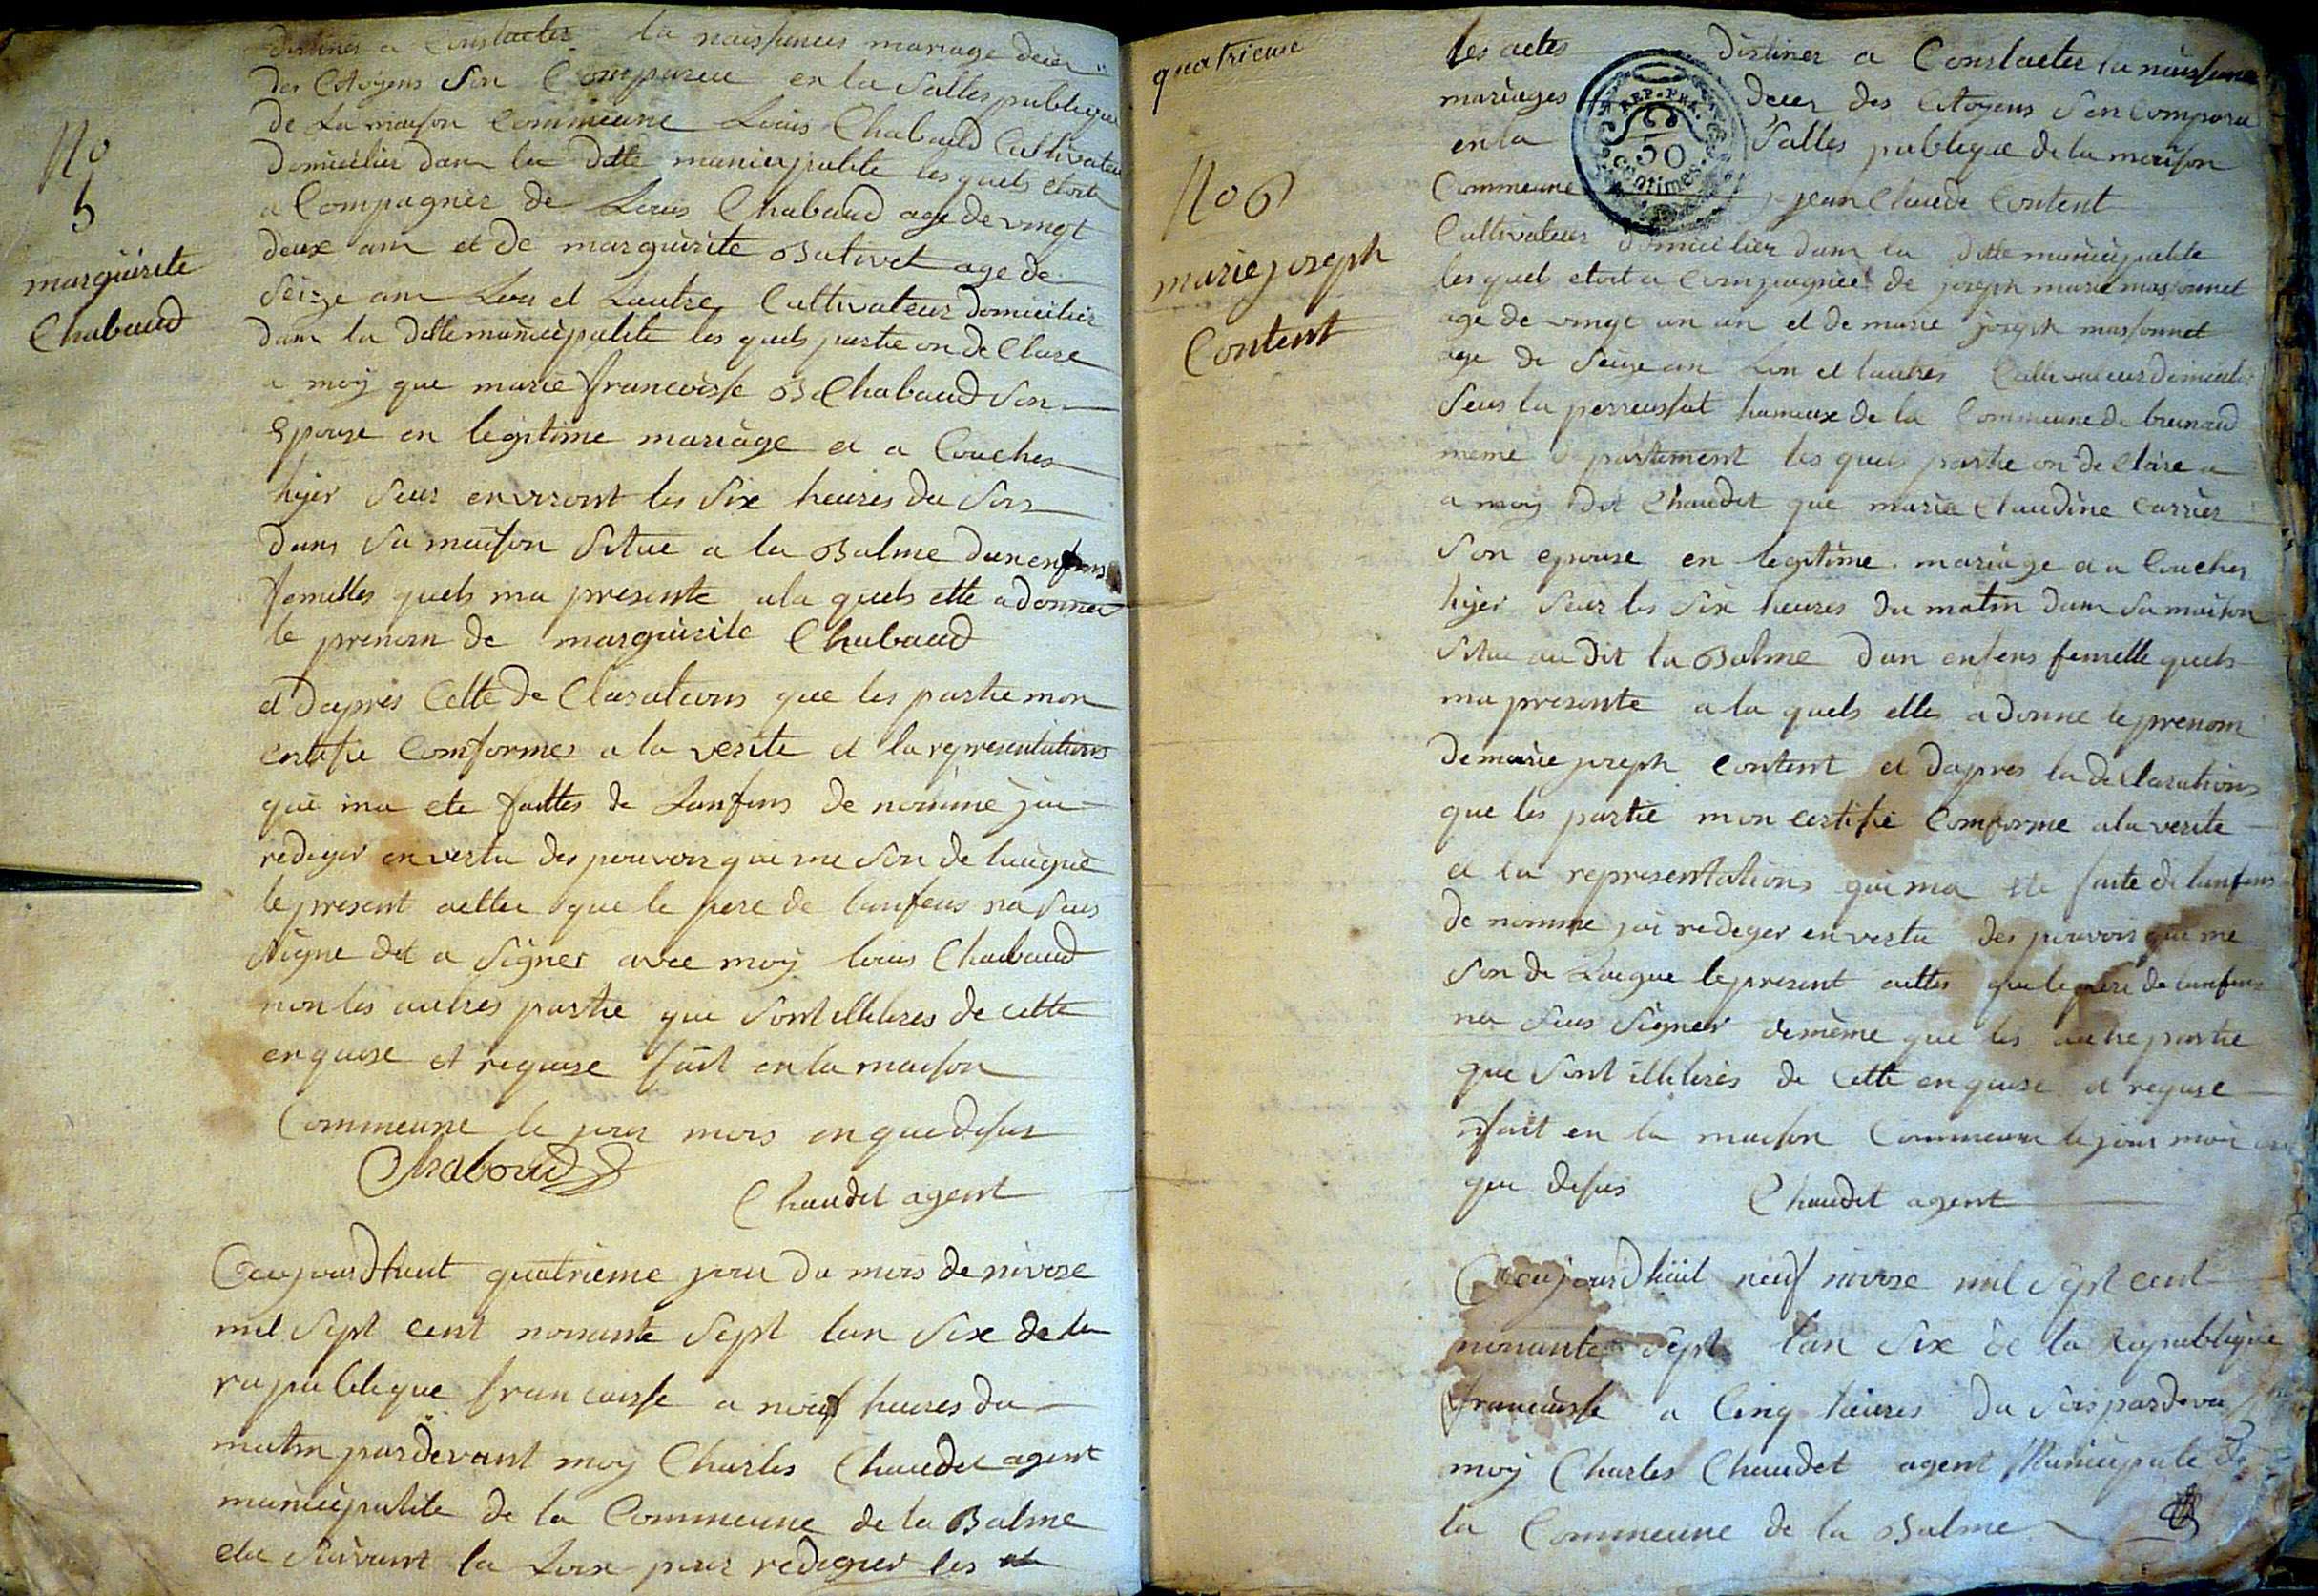 destiner a Constacter la naissences mariage decer
des Citoyens Son Compareu en la Salles publique
De La maison Commeune Louis Chabaud Cultivateur
Domicilier dam la ditte municipalite les quels etoit
a Compagner de Louis Chabaud age de vingt
deux am et de marguirite Balivet age de
Seize am Lon et Lautre Cultivateur domicilier
dam la ditte municipalite les quels partie on de Clare
a moÿ que marie francoisse B Chabaud Son
Epouse en legitime mariage et a Coucher
hijer Seur environt les Six heures du Soir
dans Sa maison Situe a la Balme dun enfens
femelles quels ma presente a la quels elle a donner
le prenom de marguirite Chabaud
et dapres Cette de Clarations que les partie mon
certifie Comformes a la verite et la representations
qui ma ete faittes de Lanfens de nomme jai
rediger en vertu des pouvoir qui me Son de leugue
le present acttes que le pere de lanfens na Seus
Signe dit a Signer avec moÿ louis Chabaud
non les autres partie que Sont illiteres de cette
enquise et requise fait en la maison
Commeune le jour mois en que desus
Chaboud
Chaudet agent
Ceaujourdhuit quatrieme jour du mois de nivose
mil Sept cent nonante Sept lan Six de la
rapublique francaisse a neuf heures du
matin pardevant moÿ Charles Chaudet agent
municipalite de la Commeune de la Balme
elu Suivant la Loix pour redigner les
No
5
marguirite
Chabaud
quatrieme
No 6
marie joseph
Content
les actes destiner a Constacter la naissence
mariages decer des Citoyens Son Comparu
en la Salles publique de la maison
Commeune jean Claude Content
Cultivateur domicilier dam la ditte municipalite
les quels etoit a Compagnier de joseph marie massonnet
age de vingt un an et de marie joseph massonnet
age de Seize an Lon et lautres Cultivateur domicilier
Seus la perreussat hameux de la Commeune de brunaud
meme departement les quels partie on de Claire a
a moÿ dit Chaudet que marie Claudine Carrier
Son epouse en legitime mariage a a Coucher
hijer Seur les Six heures du matin dam Sa maison
Situe au dit la Balme dun enfens femelle quels
ma presente a la quels elles a donne le prenom
de marie joseph Content et dapres la de Clarations
que les partie mon certifie Comforme a la verite
et la representations qui ma ete faite de lanfens
de nomme jai rediger en vertu des pouvoir qui me
Son de Leugue le present acttes que le pere de lanfens
na Seus Signer de meme que les autre partie
que Sont illiteres de cette enquise et requise
fait en la maison Commeune le jour mois en
que desus Chaudet agent
Ceaujourdhuit neuf nivose mil Sept cent
nonante Sept lan Six de la Republique
francaisse a Cinq heures du Soir pardevant
moÿ Charles Chaudet agent Municipale de
la Commeune de la Balme
REP. FRA.
50
Centimes.